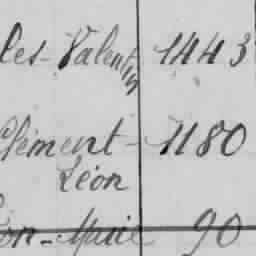 les-Valentin 1443
Clément- 1180
Léon
on-Marie 90